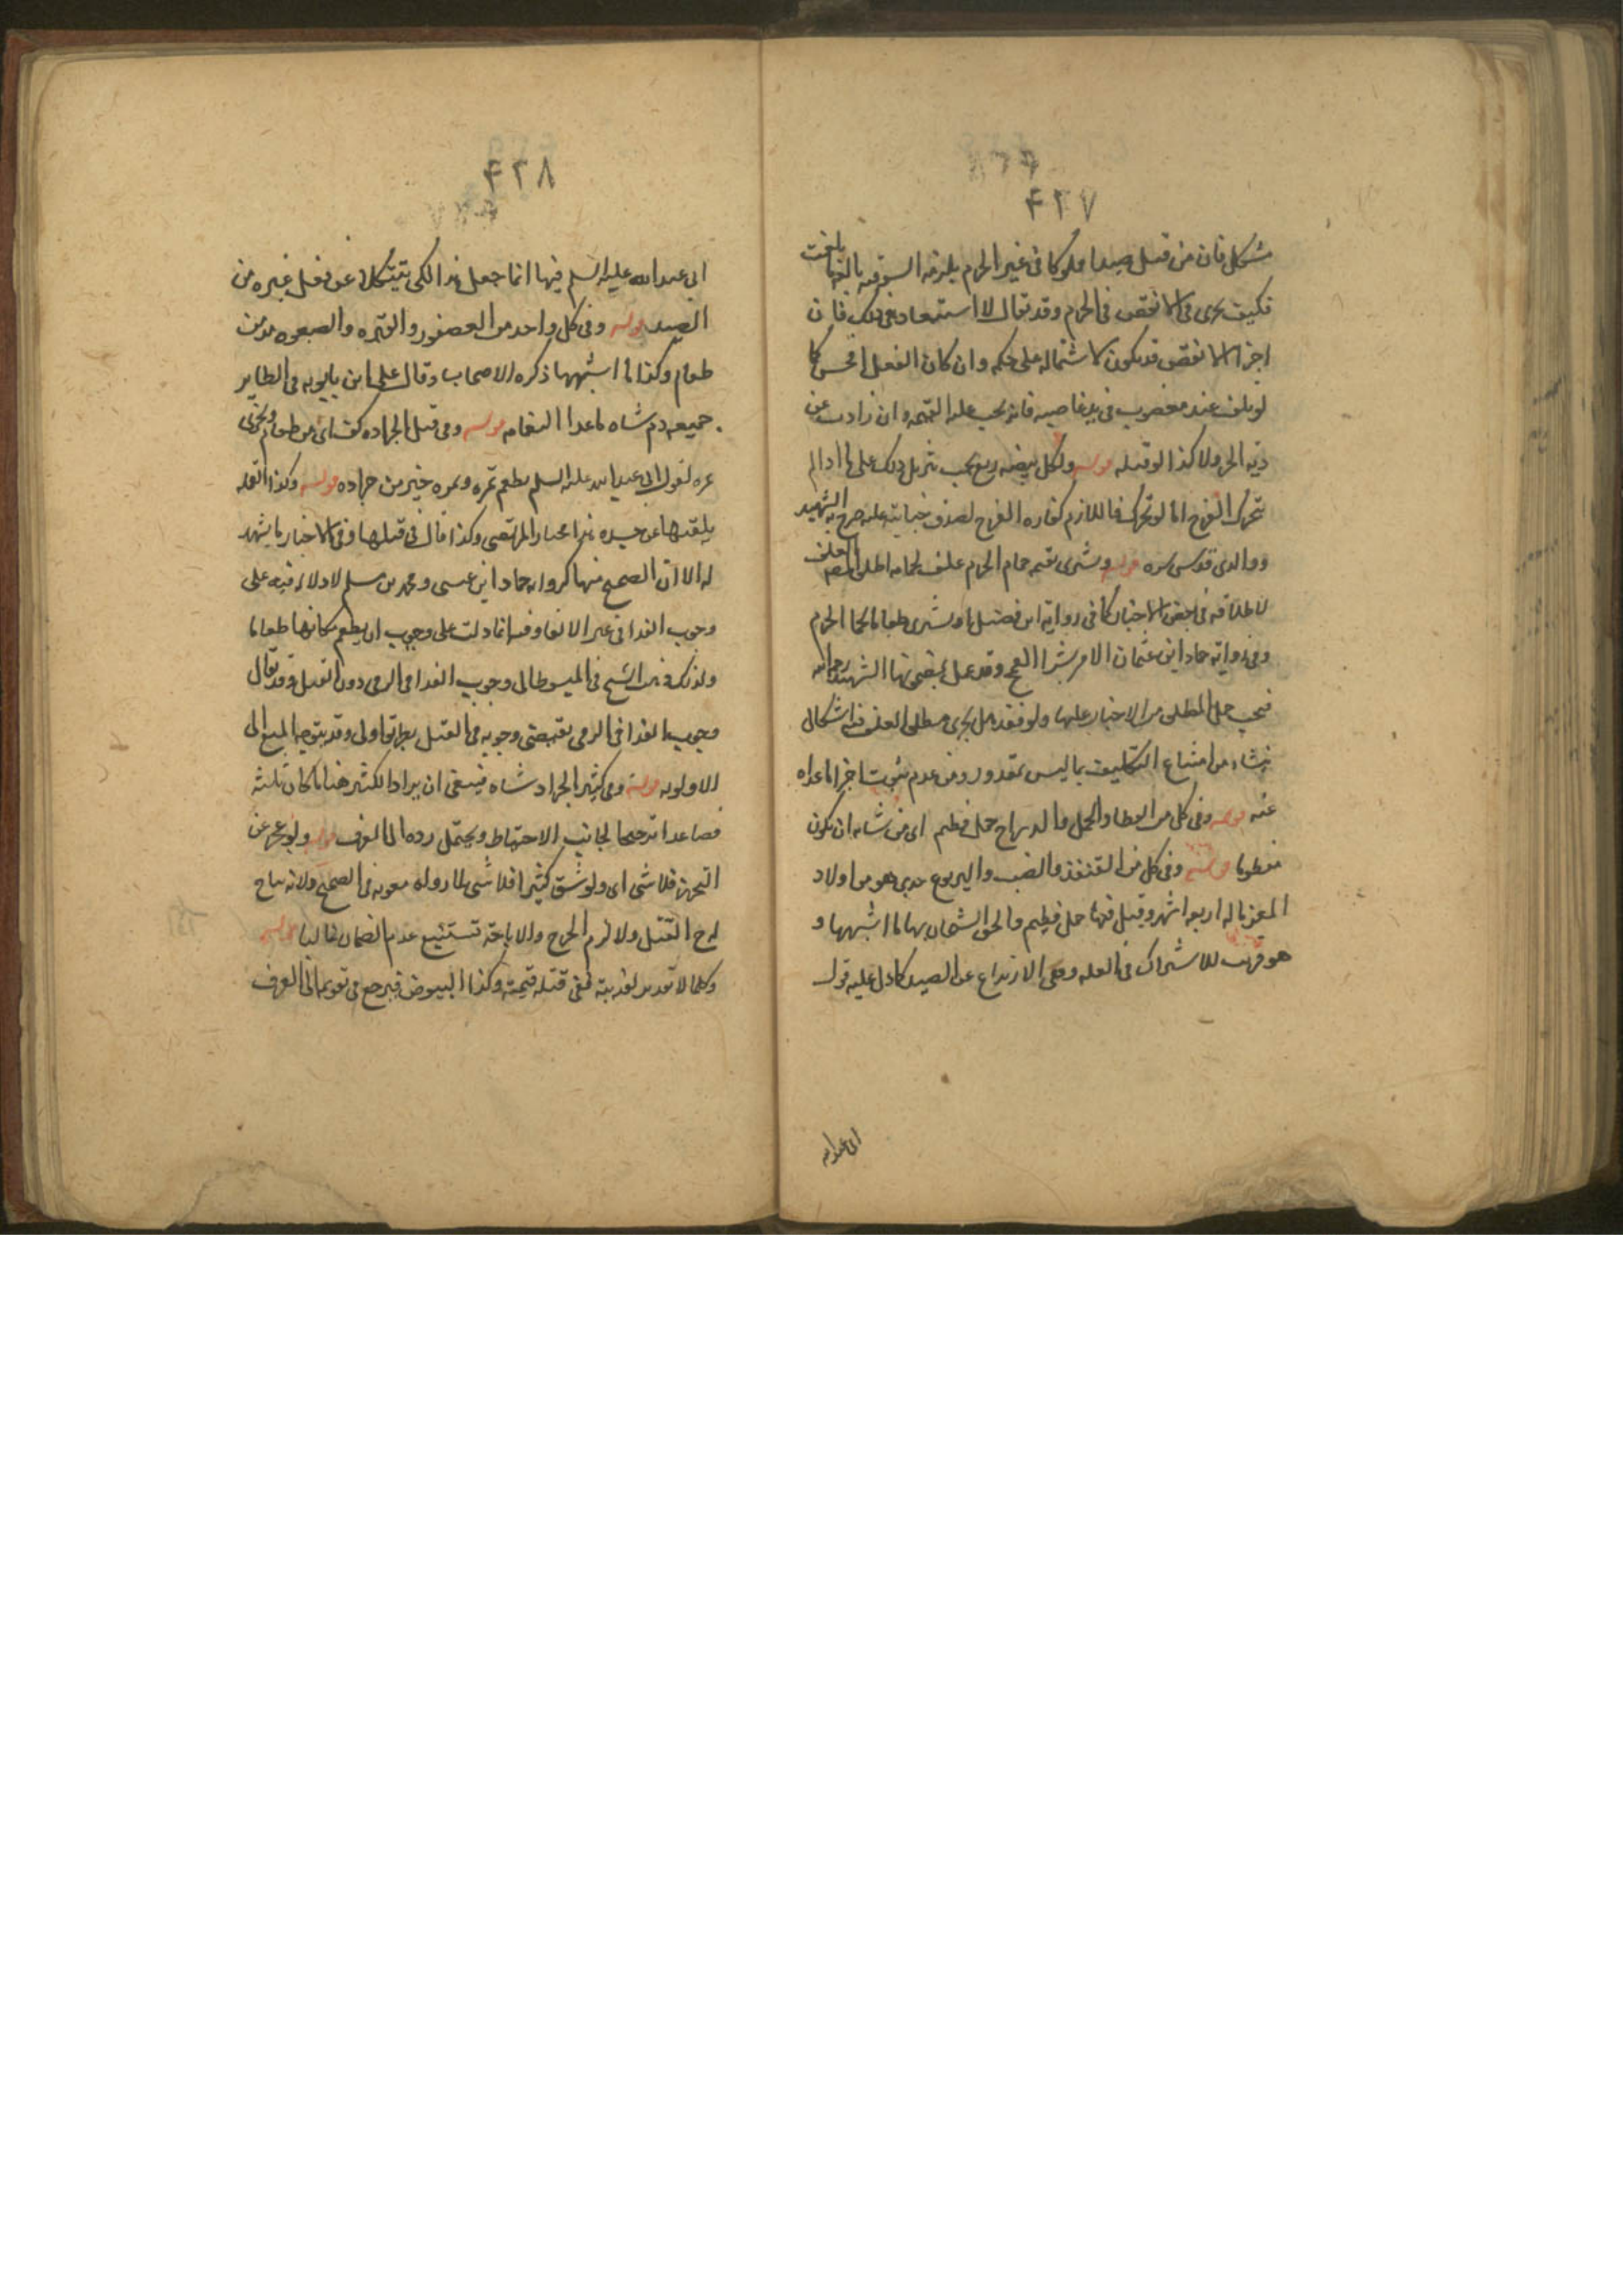 ۴۲۷
مشكل فان من قتل صيدا مملوكا فى غير الحرم يلزمه السوقيه بالغا بلغت
فكيف يجزى فى الانقص فى الحرم وقد يقال لا استبعاد فى ذلك فان
اجزا الانقص قد يكون لاشتماله على حكمه وان كان الفعل افحش كما
لو تلف عند مغصوب فى يد غاصبه فانه يجب عليه القيمه وان زادت عن
ديه الحر ولا كذا لو قتله قوله ولكل بيضه ربع يجب تنزيل ذلك على ما اذا لم
يتحرك الفرخ اما لو تحرك فاللازم كفاره الفرخ لصدق جنايته عليه صرح به الشهيد
ووالدى قدس سره قوله ويشترى بقيمه حمام الحرم علف لحمامه اطلق العلف
لاطلاقه فى بعض الاخبار كما فى روايه ابن فضيل او يشترى طعاما لحمام الحرم
وفى روايه حماد ابن عثمان الامر بشرا القمح وقد عمل بمقتضاها الشهيد رحمه الله
فيجب حمل المطلق من الاخبار عليها ولو فقد هل يجزى مطلق العلف فيه اشكال
ينشاء من امتناع التكليف بما ليس بمقدور ومن عدم ثبوت اجزا ما عداه
عنه قوله وفى كل من القطا والحجل والدراج حمل فطيم اى من شانه ان يكون
مفطوما قوله وفى كل من القنفذ والضب واليربوع جدى هو من اولاد
المعز ما له اربعه اشهر وقيل فيها حمل فطيم والحق الشيخان بها ما اشبهها و
هو قريب للاشتراك فى العله وهى الارتداع عن الصيد كما دل عليه قول
ابى عبد الله
۴۲۸
ابى عبد الله عليه السلم فيها انما جعل هذا لكى ينكل عن فعل غيره من
الصيد قوله وفى كل واحد من العصفور والقبره والصعوه مد من
طعام وكذا ما اشبهها ذكره الاصحاب وقال على ابن بابويه فى الطاير
جميعه دم شاه ما عدا النعامه قوله وفى قتل الجراده كف اى من طعام ويجزى
تمره لقول ابى عبد الله عليه السلم يطعم تمره وتمره خير من جراده قوله وكذا القمله
يلقيها عن جسده هذا مختار المرتضى وكذا قال فى قتلها وفى الاخبار ما يشهد
له الا ان الصحيح منها كروايه حماد ابن عيسى ومحمد بن مسلم لا دلاله فيه على
وجوب الفدا فى غير الالقا وفيه انما دلت على وجوب ان يطعم مكانها طعاما
ولذلك ذهب الشيخ فى المبسوط الى وجوب الفدا فى الرمى دون القتل وقد يقال
وجوب الفدا فى الرمى يقتضى وجوبه فى القتل بطريق اولى وقد يتوجه المنع الى
الاولويه قوله وفى كثير الجراد شاه ينبغى ان يراد الكثير هنا ما كان ثلثه
فصاعدا ترجيحا لجانب الاحتياط ويحتمل رده الى العرف قوله ولو عجز عن
التحرز فلا شى اى ولو شق كثيرا فلا شى لما رواه معويه فى الصحيح ولانه يباح
له ح القتل ولا لزم الحرج والاباحه تستتبع عدم الضمان غالبا قوله
وكل ما لا تقدير لفديته ففى قتله قيمته وكذا البيوض فيرجع فى تقويمه الى العرف